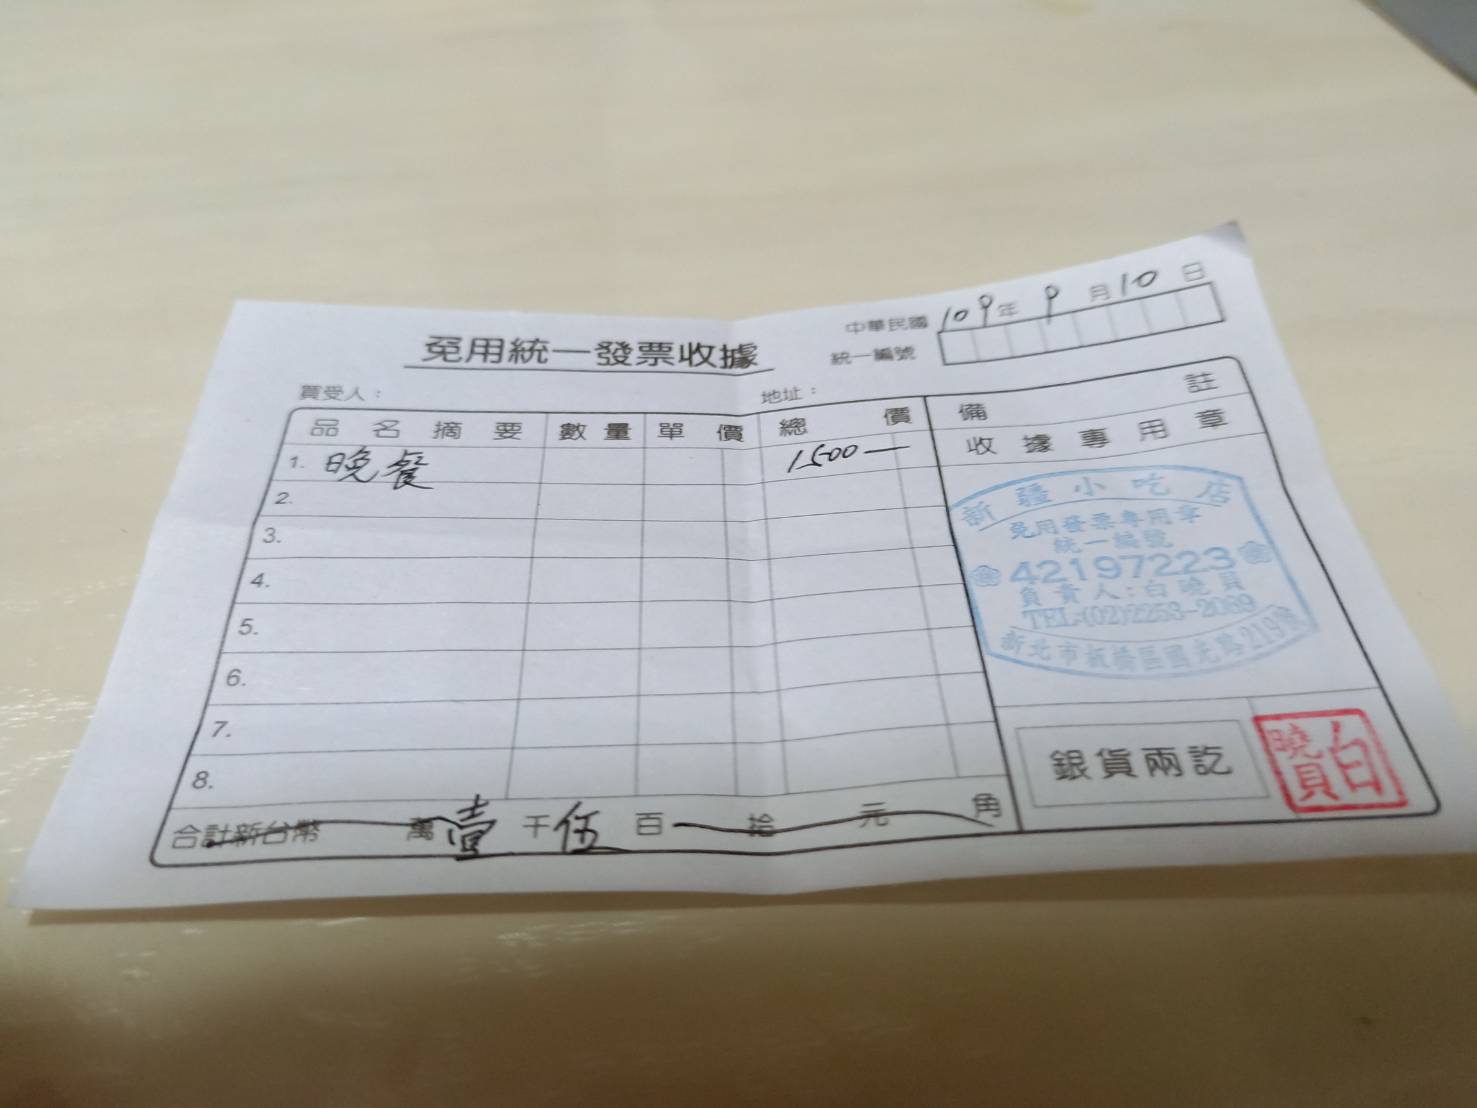 中華民國 109年 9月10日
免用統一發票收據
統一編號
買受人：
地址：
品名摘要 數量 單價 總價 備註
1. 晚餐 1500—
收據專用章
2.
3.
4.
5.
6.
7.
8.
新疆小吃店
免用發票專用章
統一編號
42197223
負責人：白曉貝
TEL:(02)2253-2089
新北市板橋區國光路219號
銀貨兩訖
白曉貝
合計新台幣 萬壹千伍百拾元角